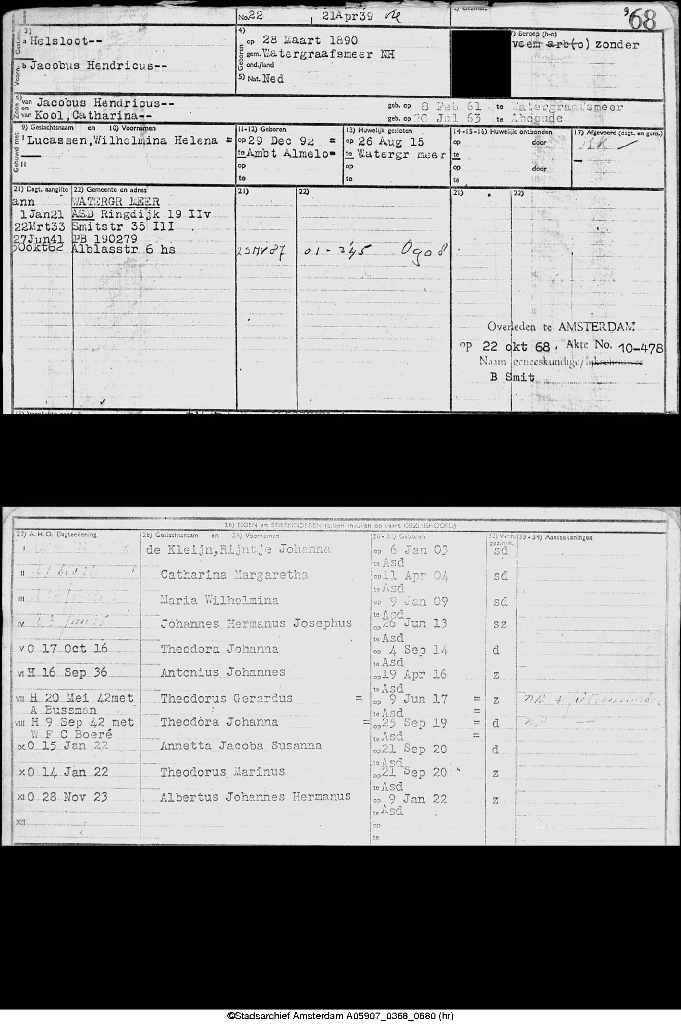 No. 22 21Apr39
968
3)
a Helsloot--
b Jacobus Hendricus--
4)
op 28 Maart 1890
gem. Watergraafsmeer NH
ond./land
5) Nat. Ned
7) Beroep (h-n)
veem arb(o) zonder
van Jacobus Hendricus--
en
van Kool, Catharina--
geb. op 8 Feb 61 te Watergraafsmeer
geb. op 20 Jul 63 te Abcoude
9) Geslachtsnaam en 10) Voornamen
11-12) Geboren
13) Huwelijk gesloten
14-15-16) Huwelijk ontbonden
17) Afgevoerd (dagt. en gem.)
I Lucassen, Wilhelmina Helena =
op 29 Dec 92 =
te Ambt Almelo=
op 26 Aug 15
te Watergr meer
op door
te
II
op
te
op
te
op door
te
21) Dagt. aangifte
22) Gemeente en adres
21)
22)
21)
22)
ann WATERGR MEER
1Jan21 ASD Ringdijk 19 IIv
22Mrt33 Smitstr 35 III
27Jun41 PB 190279
30okt62 Alblasstr 6 hs
Overleden te AMSTERDAM
op 22 okt 68. Akte No. 10-478
Naam geneeskundige/
B Smit
26) EIGEN en STIEFKINDEREN (alleen invullen op kaart GEZINSHOOFD)
27) A.H.O. Dagteekening
28) Geslachtsnaam en 29) Voornamen
30-31) Geboren
33-34) Aanteekeningen
I de Kleijn, Rijntje Johanna op 6 Jan 03 sd
te Asd
II Catharina Margaretha op 11 Apr 04 sd
te Asd
III Maria Wilhelmina op 9 Jan 09 sd
te Asd
IV Johannes Hermanus Josephus op 26 Jun 13 sz
te Asd
V O 17 Oct 16 Theodora Johanna op 4 Sep 14 d
te Asd
VI H 16 Sep 36 Antonius Johannes op 19 Apr 16 z
te Asd
VII H 20 Mei 42met Theodorus Gerardus = op 9 Jun 17 = z
A Bussman te Asd =
VIII H 9 Sep 42 met Theodora Johanna = op 25 Sep 19 = d
W F C Boeré te Asd =
IX O 15 Jan 22 Annetta Jacoba Susanna op 21 Sep 20 d
te Asd
X O 14 Jan 22 Theodorus Marinus op 21 Sep 20 z
te Asd
XI O 28 Nov 23 Albertus Johannes Hermanus op 9 Jan 22 z
te Asd
XII op
te
©Stadsarchief Amsterdam A05907_0368_0680 (hr)